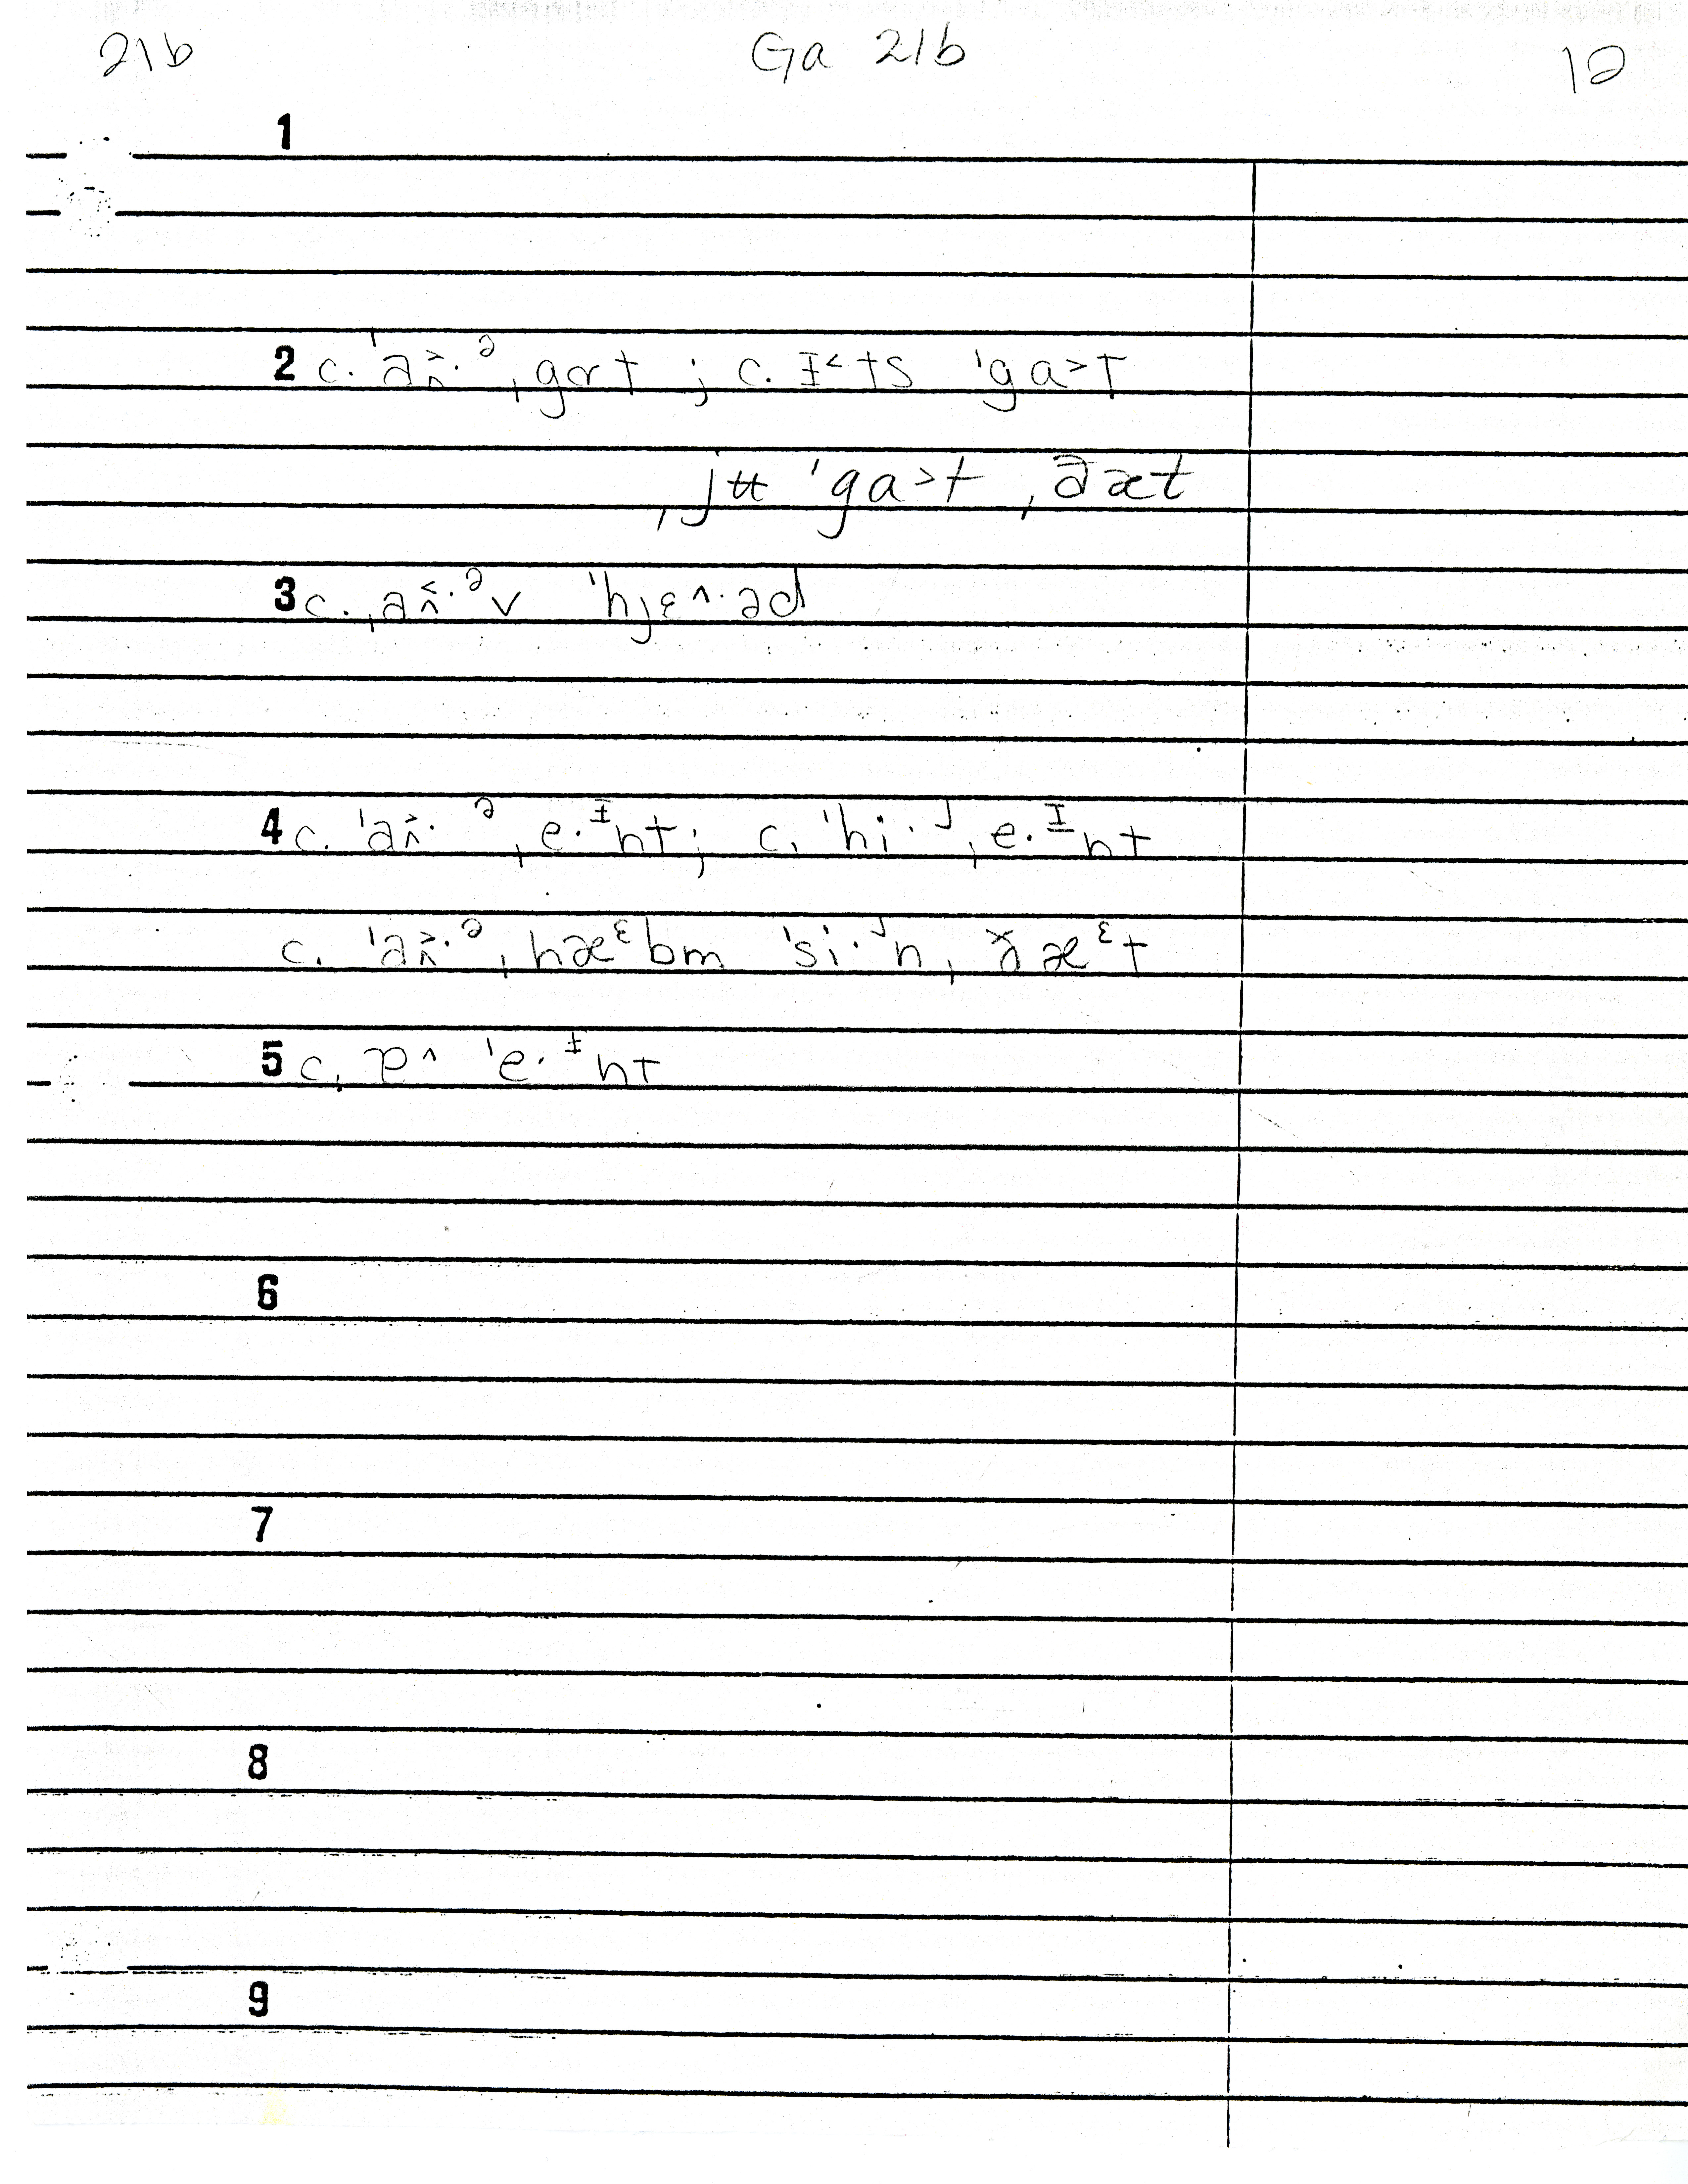 21b Ga 21b 12
1
2 c. ˈaˆ˃·ᵊ ˌgɑt ; c. ɪ˂ts ˈga˃t
ˌjʉ ˈga˃t ˌðæt
3 c. ˌaˆ˂·ᵊv ˈhjɛ^·əd
4 c. ˈaˆ˃·ᵊ ˌe·ᶦnt ; c. ˈhi·ʲ ˌe·ᶦnt
c. ˈaˆ˃·ᵊ ˌhæᵋbm ˈsi·ʲn ˌðæᵋt
5 c. ɐ^ ˈe·ᶦnt
6
7
8
9